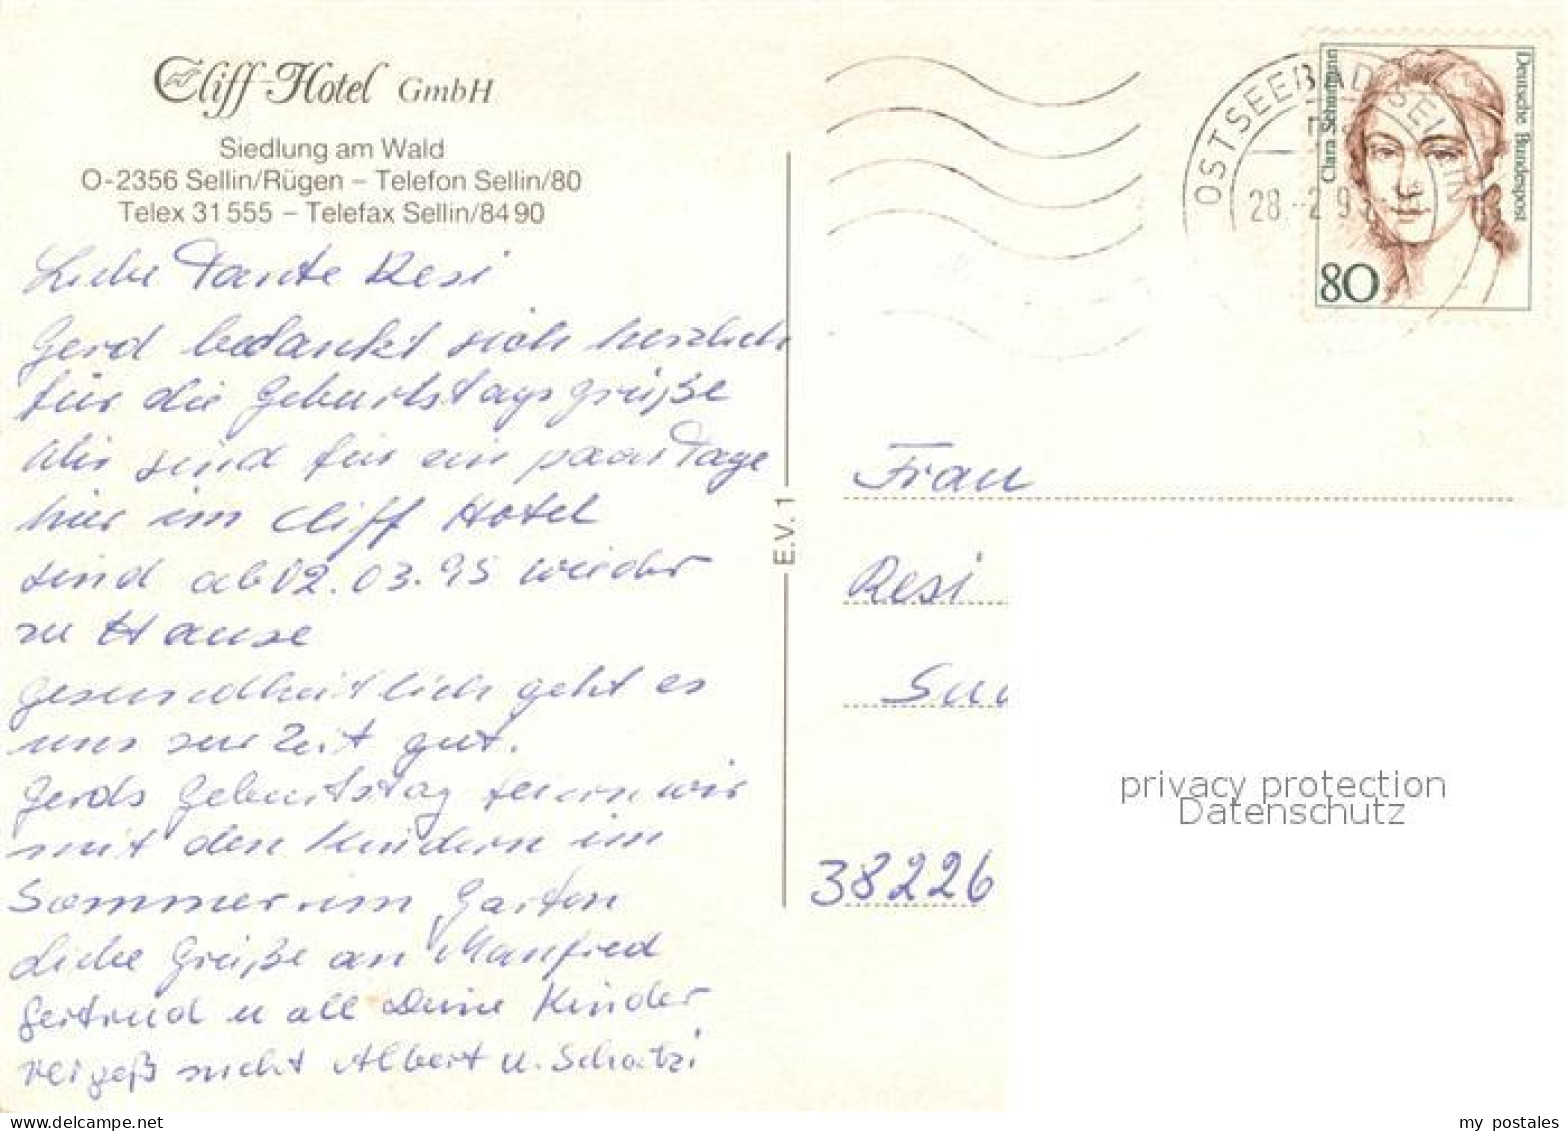 Cliff-Hotel GmbH
Siedlung am Wald
O-2356 Sellin/Rügen – Telefon Sellin/80
Telex 31 555 – Telefax Sellin/84 90
Liebe Tante Resi
Gerd bedankt sich herzlich
für die Geburtstagsgrüße
Wir sind für ein paar Tage
hier im Cliff Hotel
sind ab 02.03.95 wieder
zu Hause
gesundheitlich geht es
uns zur Zeit gut.
Gerds Geburtstag feiern wir
mit den Kindern im
Sommer im Garten
Liebe Grüße an Manfred
Gertrud u all Deine Kinder
vergeß nicht Albert u. Schatzi
E.V. 1
OSTSEEBAD SELLIN
28.-2 9
Clara Schumann
Deutsche Bundespost
80
Frau
Resi
38226
privacy protection
Datenschutz
my postales